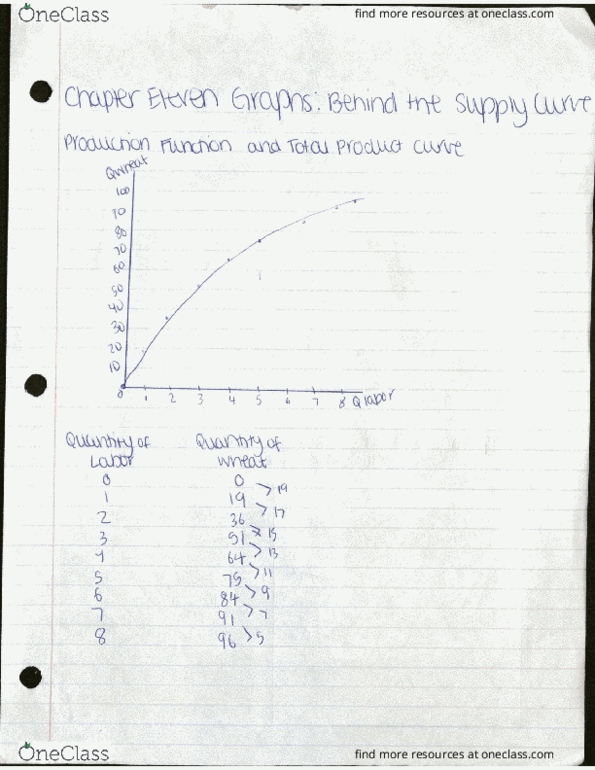 OneClass
find more resources at oneclass.com
Chapter Eleven Graphs: Behind the Supply Curve
Production Function and Total Product Curve
Qwheat
100
90
80
70
60
50
40
30
20
10
0 1 2 3 4 5 6 7 8 Qlabor
Quantity of Quantity of
Labor Wheat
0 0 > 19
1 19 > 17
2 36 > 15
3 51 > 13
4 64 > 11
5 75 > 9
6 84 > 7
7 91 > 5
8 96
OneClass
find more resources at oneclass.com